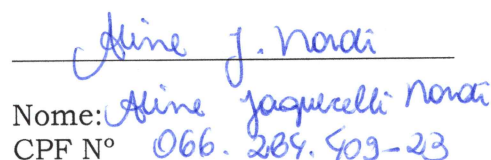 Aline J. Nardi
Nome: Aline Jaquecelli Nardi
CPF Nº 066.264.409-23